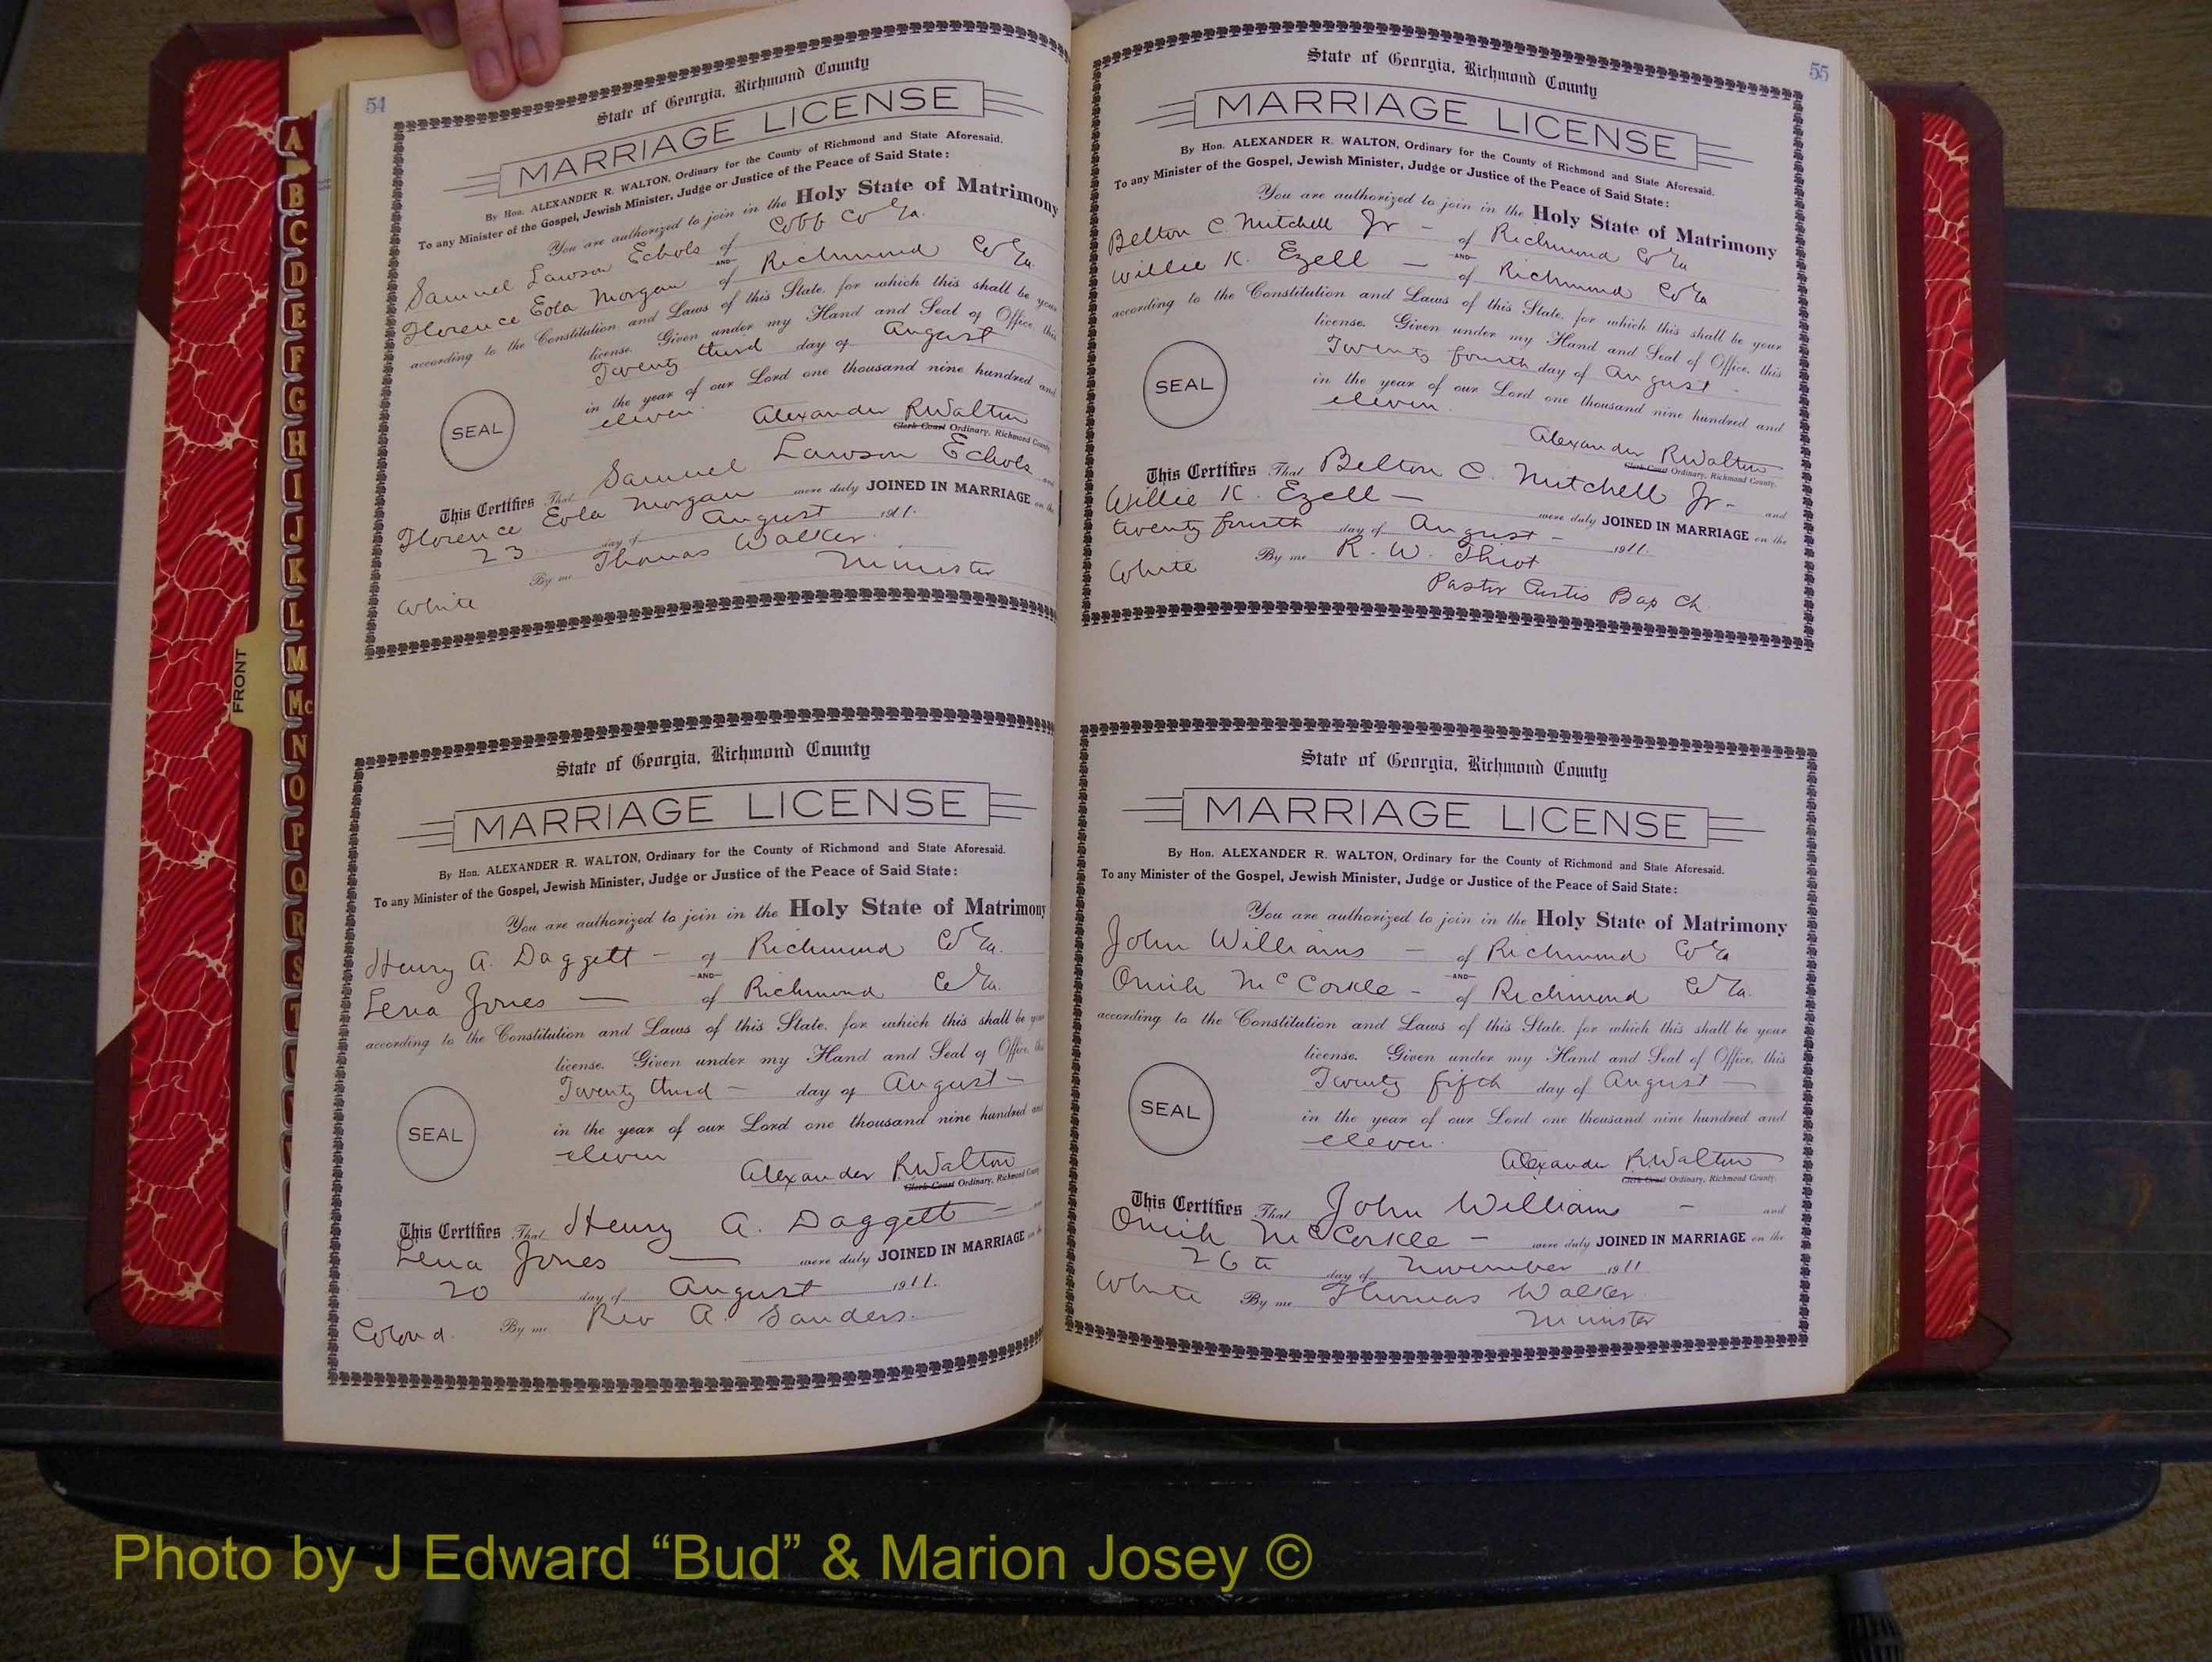 54
State of Georgia, Richmond County
MARRIAGE LICENSE
By Hon. ALEXANDER R. WALTON, Ordinary for the County of Richmond and State Aforesaid.
To any Minister of the Gospel, Jewish Minister, Judge or Justice of the Peace of Said State:
You are authorized to join in the Holy State of Matrimony
Samuel Lawson Echols of Cobb Co Ga.
-AND-
Florence Eola Morgan of Richmond Co Ga.
according to the Constitution and Laws of this State, for which this shall be your
license. Given under my Hand and Seal of Office, this
Twenty third day of August
in the year of our Lord one thousand nine hundred and
eleven.
SEAL
Alexander R Walton
Clerk Court Ordinary, Richmond County
This Certifies That Samuel Lawson Echols and
Florence Eola Morgan were duly JOINED IN MARRIAGE on the
23 day of August 1911.
By me Thomas Walker
Minister
White
State of Georgia, Richmond County
MARRIAGE LICENSE
By Hon. ALEXANDER R. WALTON, Ordinary for the County of Richmond and State Aforesaid.
To any Minister of the Gospel, Jewish Minister, Judge or Justice of the Peace of Said State:
You are authorized to join in the Holy State of Matrimony
Henry A. Daggett - of Richmond Co Ga.
-AND-
Lena Jones - of Richmond Co Ga.
according to the Constitution and Laws of this State, for which this shall be your
license. Given under my Hand and Seal of Office, this
Twenty third - day of August -
in the year of our Lord one thousand nine hundred and
eleven
SEAL
Alexander R Walton
Clerk Court Ordinary, Richmond County
This Certifies That Henry A. Daggett -
Lena Jones - were duly JOINED IN MARRIAGE
20 day of August 1911.
Colord. By me Rev A. Sanders.
55
State of Georgia, Richmond County
MARRIAGE LICENSE
By Hon. ALEXANDER R. WALTON, Ordinary for the County of Richmond and State Aforesaid.
To any Minister of the Gospel, Jewish Minister, Judge or Justice of the Peace of Said State:
You are authorized to join in the Holy State of Matrimony
Belton C Mitchell Jr - of Richmond Co Ga
-AND-
Willie K. Ezell - of Richmond Co Ga
according to the Constitution and Laws of this State, for which this shall be your
license. Given under my Hand and Seal of Office, this
Twenty fourth day of August -
in the year of our Lord one thousand nine hundred and
eleven
SEAL
Alexander R Walton
Clerk Court Ordinary, Richmond County.
This Certifies That Belton C. Mitchell Jr - and
Willie K. Ezell - were duly JOINED IN MARRIAGE on the
twenty fourth day of August - 1911.
White By me R. W. Thiot
Pastor Curtis Bap Ch.
State of Georgia, Richmond County
MARRIAGE LICENSE
By Hon. ALEXANDER R. WALTON, Ordinary for the County of Richmond and State Aforesaid.
To any Minister of the Gospel, Jewish Minister, Judge or Justice of the Peace of Said State:
You are authorized to join in the Holy State of Matrimony
John Williams - of Richmond Co Ga
-AND-
McCorkle - of Richmond Co Ga.
according to the Constitution and Laws of this State, for which this shall be your
license. Given under my Hand and Seal of Office, this
Twenty fifth day of August -
in the year of our Lord one thousand nine hundred and
eleven.
SEAL
Alexander R Walton
Clerk Court Ordinary, Richmond County.
This Certifies That John Williams - and
McCorkle - were duly JOINED IN MARRIAGE on the
26th day of November 1911
White By me Thomas Walker
Minister
A
B
C
D
E
F
G
H
I
J
K
L
M
Mc
N
O
P
Q
R
S
T
FRONT
Photo by J Edward “Bud” & Marion Josey ©